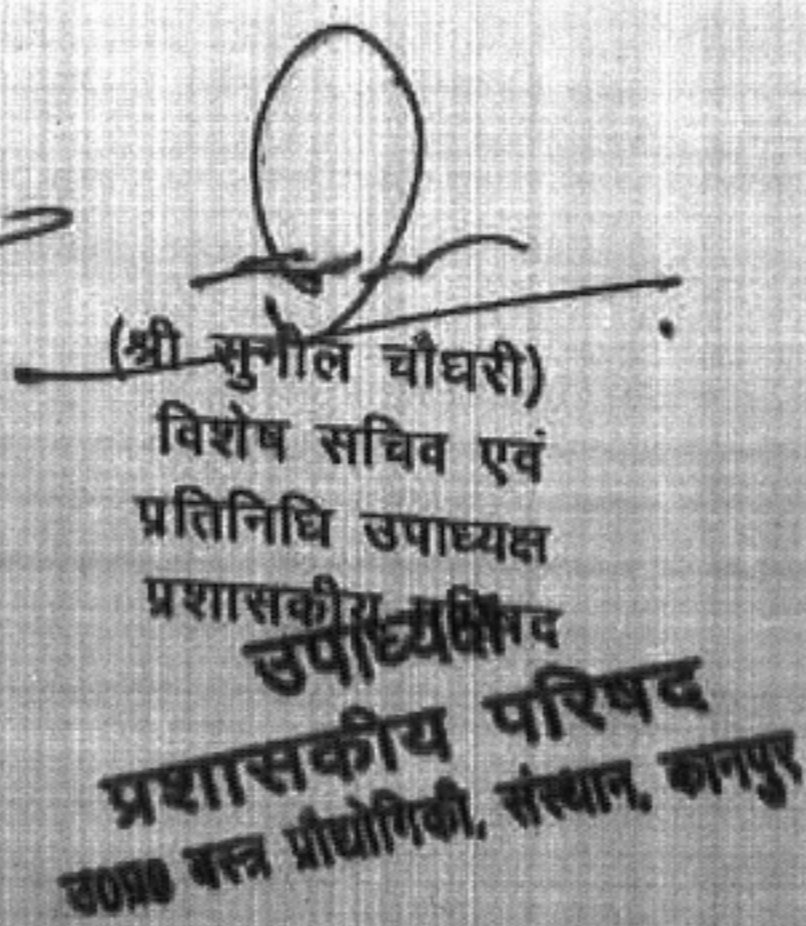 (श्री सुनील चौधरी)
विशेष सचिव एवं
प्रतिनिधि उपाध्यक्ष
प्रशासकीय परिषद
उपाध्यक्ष
प्रशासकीय परिषद
उ०प्र० वस्त्र प्रौद्योगिकी, संस्थान, कानपुर